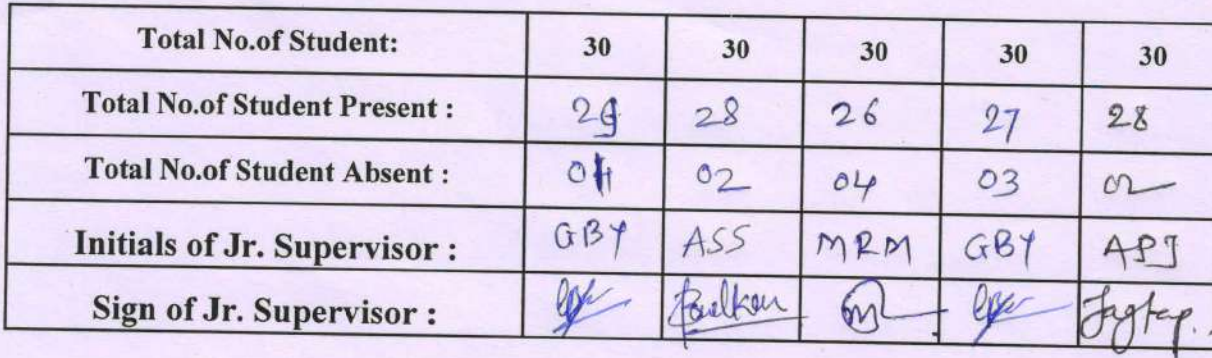 Total No.of Student: 30 30 30 30 30
Total No.of Student Present : 29 28 26 27 28
Total No.of Student Absent : 01 02 04 03 02
Initials of Jr. Supervisor : GBY ASS MRM GBY APJ
Sign of Jr. Supervisor : Jagtap.